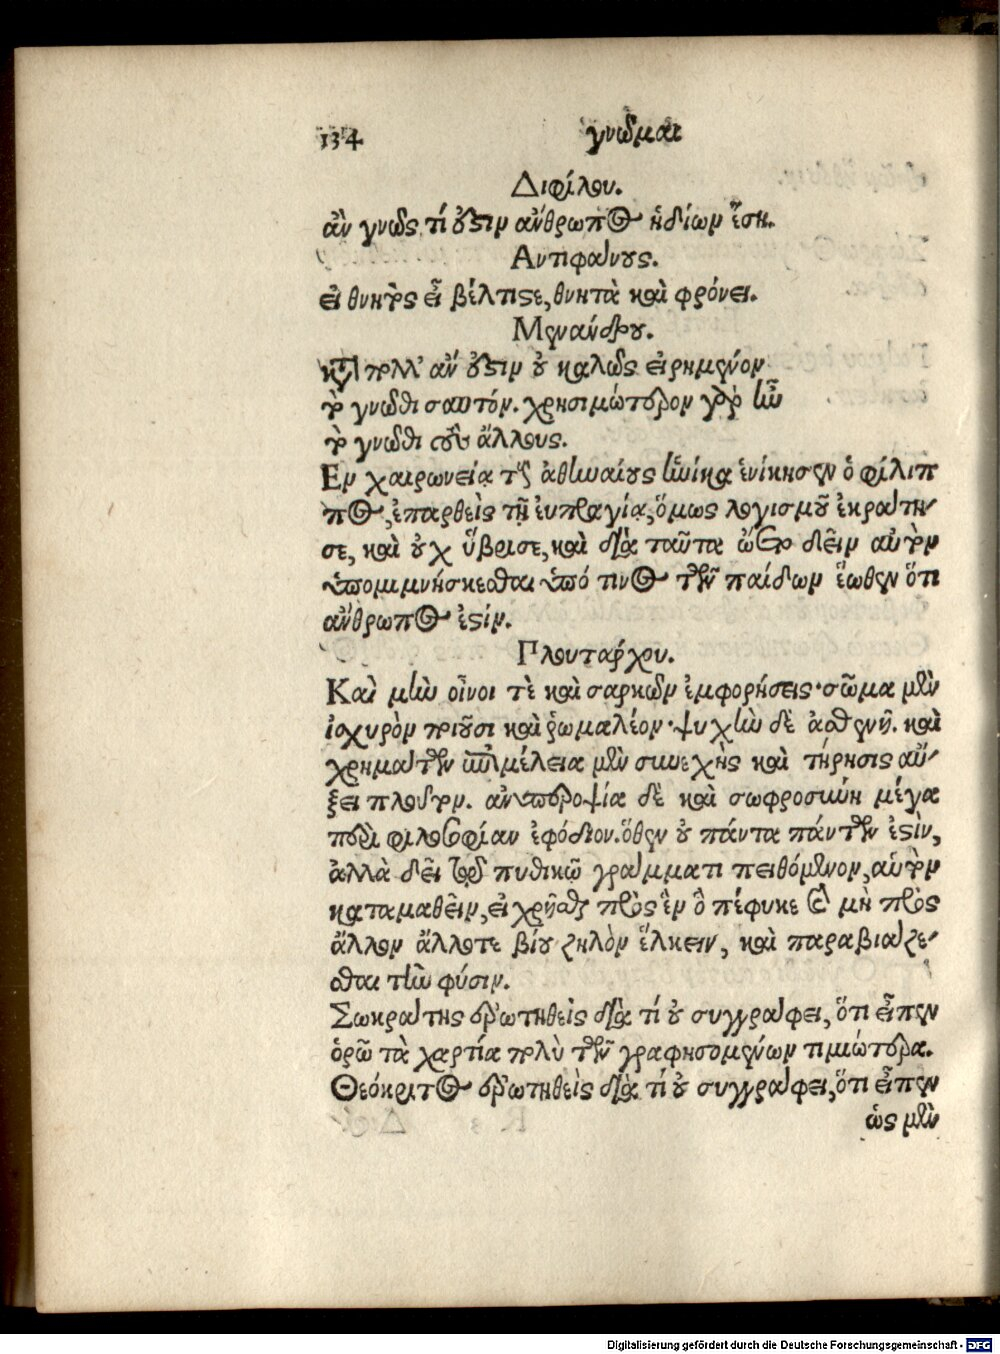 134 γνῶμαι
Διφίλου.
ἂν γνῷς τί ὅστιν ἄνθρωπος ἡδίων ἔσῃ.
Αντιφάνους.
εἰ θνητὸς εἶ βέλτιστε, θνητὰ καὶ φρόνει.
Μενάνδρου.
κατὰ πόλλ' ἄν ὅστιν οὐ καλῶς εἰρημένον
τὸ γνῶθι σαυτόν. χρησιμώτερον γὰρ ἦν
τὸ γνῶθι τοὺς ἄλλους.
Εν χαιρωνείᾳ τοὺς ἀθηναίους ἡνίκα ἐνίκησεν ὁ φίλιπ
πος, ἐπαρθεὶς τῇ εὐπραγίᾳ, ὅμως λογισμοῦ ἐκράτη-
σε, καὶ οὐχ ὕβρισε, καὶ διὰ ταῦτα ᾤετο δεῖν αὐτὸν
ὑπομιμνήσκεσθαι ὑπό τινος τῶν παίδων ἕωθεν ὅτι
ἄνθρωπος ἐστίν.
Πλουτάρχου.
Καὶ μὴν οἶνοι τὲ καὶ σαρκῶν ἐμφορήσεις· σῶμα μὲν
ἰσχυρὸν ποιοῦσι καὶ ῥωμαλέον· ψυχὴν δὲ ἀσθενῆ. καὶ
χρημάτων ἐπιμέλεια μὲν συνεχὴς καὶ τήρησις αὔ-
ξει πλοῦτον. ἀνυπεροψία δὲ καὶ σωφροσύνη μέγα
περὶ φιλοσοφίαν ἐφόδιον. ὅθεν οὐ πάντα πάντων ἐστὶν,
ἀλλὰ δεῖ τῷ πυθικῷ γράμματι πειθόμενον, αὑτὸν
καταμαθεῖν, εἰ χρῆσθαι πρὸς ἓν ὃ πέφυκε καὶ μὴ πρὸς
ἄλλον ἄλλοτε βίου ζηλὸν ἕλκειν, καὶ παραβιάζε-
σθαι τὴν φύσιν.
Σωκράτης ἐρωτηθεὶς διὰ τί οὐ συγγράφει, ὅτι εἶπεν
ὁρῶ τὰ χαρτία πολὺ τῶν γραφησομένων τιμιώτερα.
Θεόκριτος ἐρωτηθεὶς διὰ τί οὐ συγγράφει, ὅτι εἶπεν
ὡς μὲν
Digitalisierung gefördert durch die Deutsche Forschungsgemeinschaft - DFG